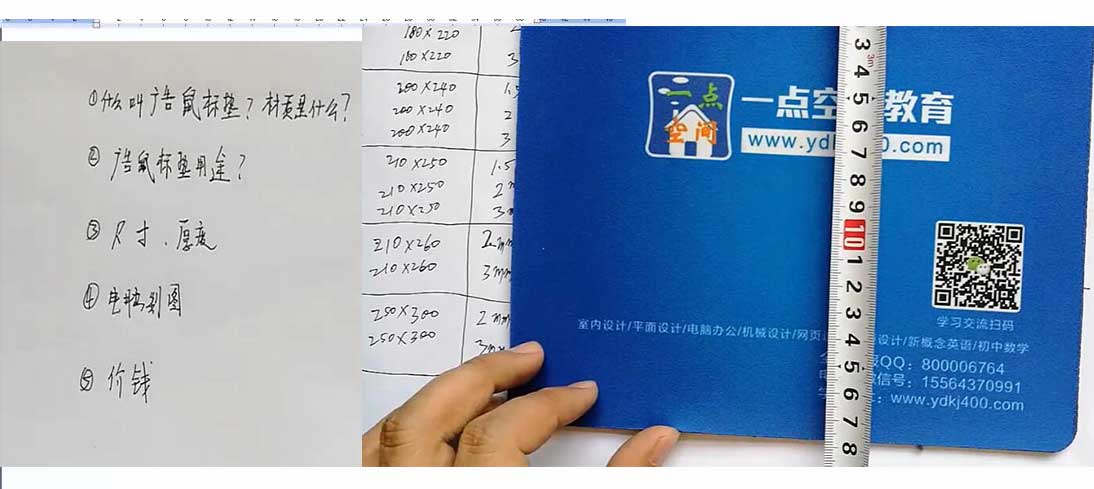 ①什么叫广告鼠标垫？材质是什么？
②广告鼠标垫用途？
③尺寸、厚度
④电脑刻图
⑤价钱
180×220
180×220 3
200×240 1.5
200×240 2
200×240 3
210×250 1.5
210×250 2m
210×250 3m
210×260 2mm
210×260 3mm
250×300 2mm
250×300 3mm
一点
空间
一点空 教育
www.ydk 0.com
学习交流扫码
室内设计/平面设计/电脑办公/机械设计/网页 设计/新概念英语/初中数学
QQ：800006764
信号：15564370991
：www.ydkj400.com
3m
3
4
5
6
7
8
9
10
1
2
3
4
5
6
7
8